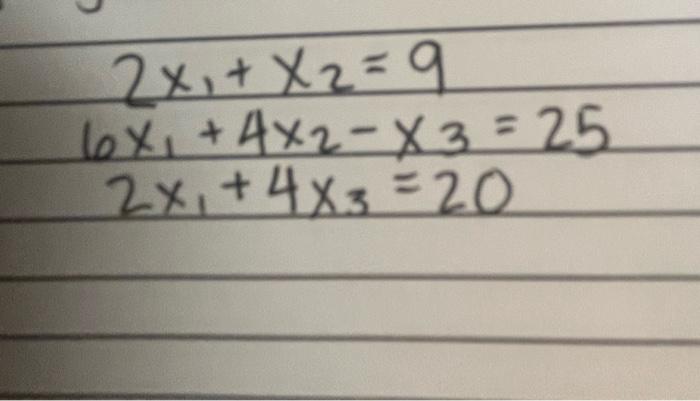 2x₁ + x₂ = 9
6x₁ + 4x₂ - x₃ = 25
2x₁ + 4x₃ = 20